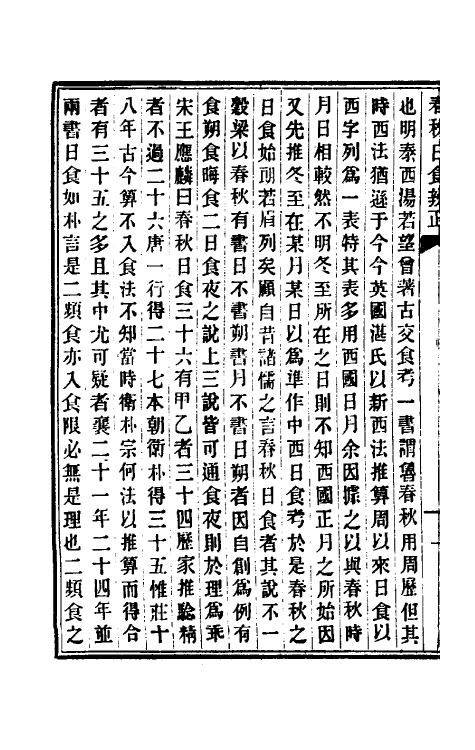 春秋日食辨正
也明泰西湯若望曾著古交食考一書謂魯春秋用周歷但其
時西法猶遜于今今英國湛氏以新西法推算周以來日食以
西字列爲一表特其表多用西國日月余因據之以與春秋時
月日相較然不明冬至所在之日則不知西國正月之所始因
又先推冬至在某月某日以爲準作中西日食考於是春秋之
日食始朗若眉列矣顧自昔諸儒之言春秋日食者其說不一
穀梁以春秋有書日不書朔書月不書日朔者因自創爲例有
食朔食晦食二日食夜之說上三說皆可通食夜則於理爲乖
宋王應麟曰春秋日食三十六有甲乙者三十四歷家推驗精
者不過二十六唐一行得二十七本朝衛朴得三十五惟莊十
八年古今算不入食法不知當時衛朴宗何法以推算而得合
者有三十五之多且其中尤可疑者襄二十一年二十四年並
兩書日食如朴言是二類食亦入食限必無是理也二類食之